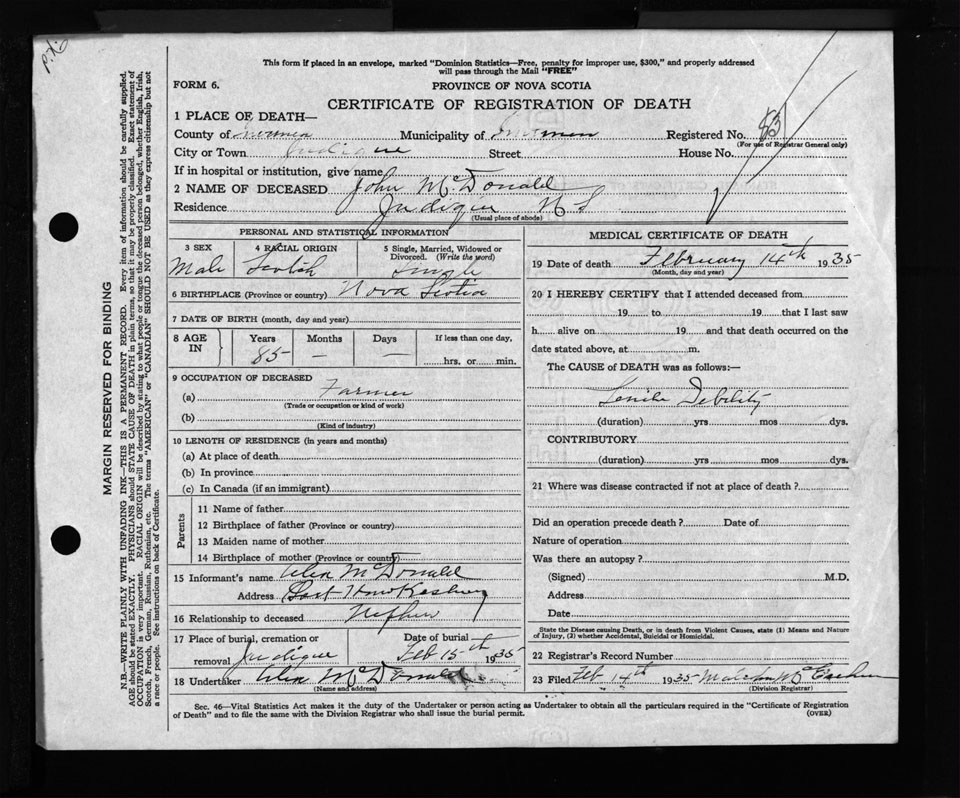 This form if placed in an envelope, marked "Dominion Statistics—Free, penalty for improper use, $300," and properly addressed
will pass through the Mail "FREE"
FORM 6.
PROVINCE OF NOVA SCOTIA
CERTIFICATE OF REGISTRATION OF DEATH
1 PLACE OF DEATH—
County of Municipality of Registered No. 83
(For use of Registrar General only)
City or Town Judique Street House No.
If in hospital or institution, give name
2 NAME OF DECEASED John McDonald
Residence Judique N S
(Usual place of abode)
PERSONAL AND STATISTICAL INFORMATION
3 SEX 4 RACIAL ORIGIN 5 Single, Married, Widowed or Divorced. (Write the word)
Male Scotch Single
6 BIRTHPLACE (Province or country) Nova Scotia
7 DATE OF BIRTH (month, day and year)
8 AGE IN Years Months Days If less than one day,
85 — — hrs. or min.
9 OCCUPATION OF DECEASED
(a) Farmer
(Trade or occupation or kind of work)
(b)
(Kind of industry)
10 LENGTH OF RESIDENCE (in years and months)
(a) At place of death
(b) In province
(c) In Canada (if an immigrant)
Parents
11 Name of father
12 Birthplace of father (Province or country)
13 Maiden name of mother
14 Birthplace of mother (Province or country)
15 Informant's name Alex McDonald
Address
16 Relationship to deceased Nephew
17 Place of burial, cremation or removal Judique
Date of burial Feb 15th 1935
18 Undertaker Alex McDonald
(Name and address)
MEDICAL CERTIFICATE OF DEATH
19 Date of death February 14th 1935
(Month, day and year)
20 I HEREBY CERTIFY that I attended deceased from
19 to 19 that I last saw
h alive on 19 and that death occurred on the
date stated above, at m.
The CAUSE of DEATH was as follows:—
Senile Debility
(duration) yrs mos dys.
CONTRIBUTORY
(duration) yrs mos dys.
21 Where was disease contracted if not at place of death?
Did an operation precede death? Date of
Nature of operation
Was there an autopsy?
(Signed) M.D.
Address
Date
State the Disease causing Death, or in death from Violent Causes, state (1) Means and Nature
of Injury, (2) whether Accidental, Suicidal or Homicidal.
22 Registrar's Record Number
23 Filed Feb 14th 1935
(Division Registrar)
Sec. 46—Vital Statistics Act makes it the duty of the Undertaker or person acting as Undertaker to obtain all the particulars required in the "Certificate of Registration
of Death" and to file the same with the Division Registrar who shall issue the burial permit.
(OVER)
MARGIN RESERVED FOR BINDING
N.B.—WRITE PLAINLY WITH UNFADING INK—THIS IS A PERMANENT RECORD. Every item of information should be carefully supplied.
AGE should be stated EXACTLY. PHYSICIANS should STATE CAUSE OF DEATH in plain terms, so that it may be properly classified. Exact statement of
OCCUPATION is very important. RACIAL ORIGIN will be described by stating to what people or tongue the deceased person belonged, whether English, Irish,
Scotch, French, German, Russian, Ruthenian, etc. The terms "AMERICAN" or "CANADIAN" SHOULD NOT BE USED as they express citizenship but not
a race or people. See instructions on back of Certificate.